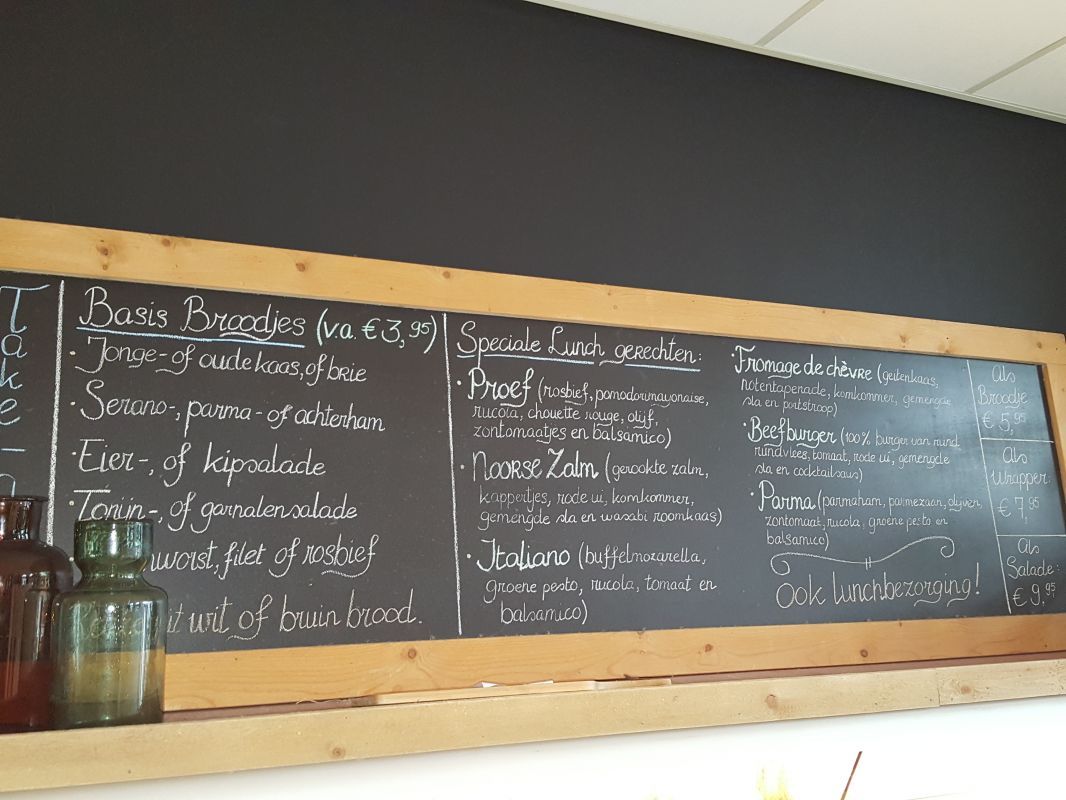 Take-a
Basis Broodjes (v.a. € 3,95)
· Jonge- of oude kaas, of brie
· Serano-, parma- of achterham
· Eier-, of kipsalade
· Tonijn-, of garnalensalade
worst, filet of rosbief
uit wit of bruin brood.
Speciale Lunch gerechten:
· Proef (rosbief, pomodorimayonaise,
rucola, chouette rouge, olijf,
zontomaatjes en balsamico)
· Noorse Zalm (gerookte zalm,
kappertjes, rode ui, komkommer,
gemengde sla en wasabi roomkaas)
· Italiano (buffelmozarella,
groene pesto, rucola, tomaat en
balsamico)
· Fromage de chèvre (geitenkaas,
notentapenade, komkommer, gemengde
sla en portstroop)
· Beefburger (100% burger van rund
rundvlees, tomaat, rode ui, gemengde
sla en cocktailsaus)
· Parma (parmaham, parmezaan, olijven,
zontomaat, rucola, groene pesto en
balsamico)
Ook lunchbezorging!
Als
Broodje
€ 5,95
Als
Wrapper:
€ 7,95
Als
Salade:
€ 9,95